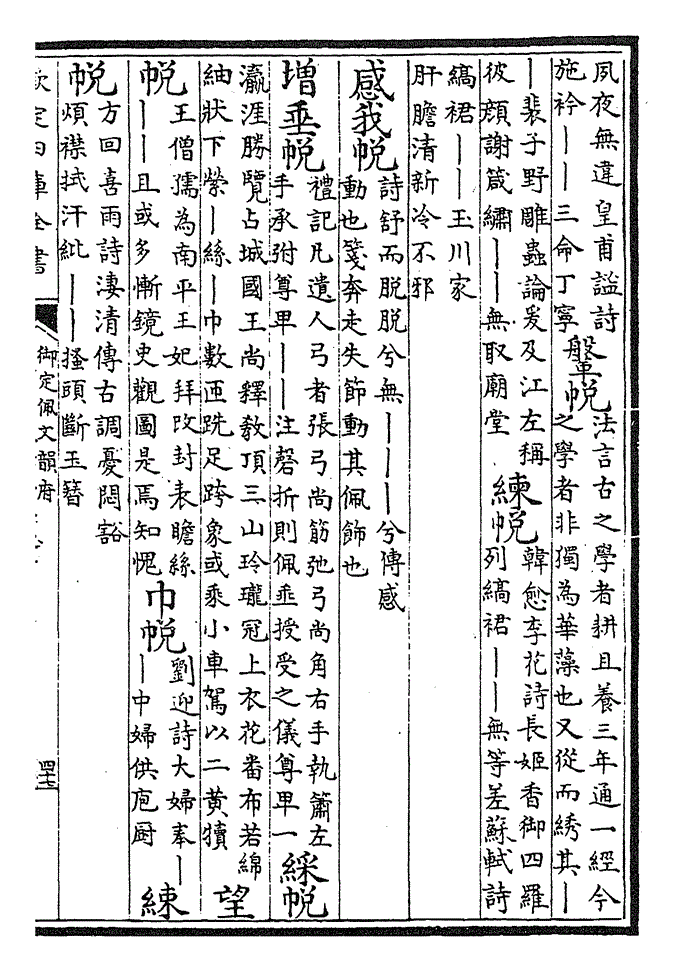 夙夜無違皇甫謐詩
施衿——三命丁寧
鞶帨
法言古之學者耕且養三年通一經今
之學者非獨為華藻也又從而綉其—
—裴子野雕蟲論爰及江左稱
彼顔謝箴繡——無取廟堂
練帨
韓愈李花詩長姬香御四羅
列縞裙——無等差蘇軾詩
縞裙——玉川家
肝膽清新冷不邪
感我帨
詩舒而脱脱兮無———兮傳感
動也箋奔走失節動其佩飾也
增垂帨
禮記凡遺人弓者張弓尚筋弛弓尚角右手執簫左
手承弣尊卑——注磬折則佩垂授受之儀尊卑一
綵帨
瀛涯勝覽占城國王尚釋教頂三山玲瓏冠上衣花畨布若綿
紬狀下縈—絲—巾數匝跣足跨象或乘小車駕以二黄犢
望帨
王僧孺為南平王妃拜攺封表瞻絲
——且或多慚鏡史觀圖是焉知愧
巾帨
劉迎詩大婦奉—
—中婦供庖厨
練帨
方回喜雨詩淒清傳古調憂悶豁
煩襟拭汗紕——搔頭斷玉簪
欽定四庫全書
御定佩文韻府